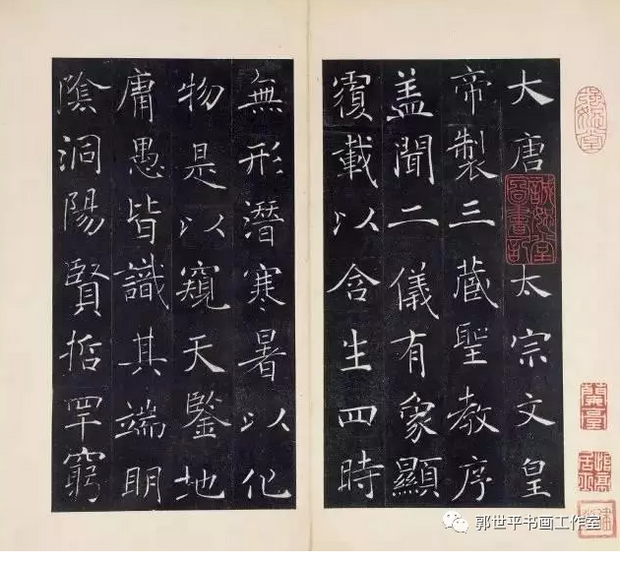 大唐太宗文皇
帝製三藏聖教序
盖聞二儀有象顯
覆載以含生四時
無形潛寒暑以化
物是以窺天鑒地
庸愚皆識其端明
陰洞陽賢哲罕窮
郭世平书画工作室